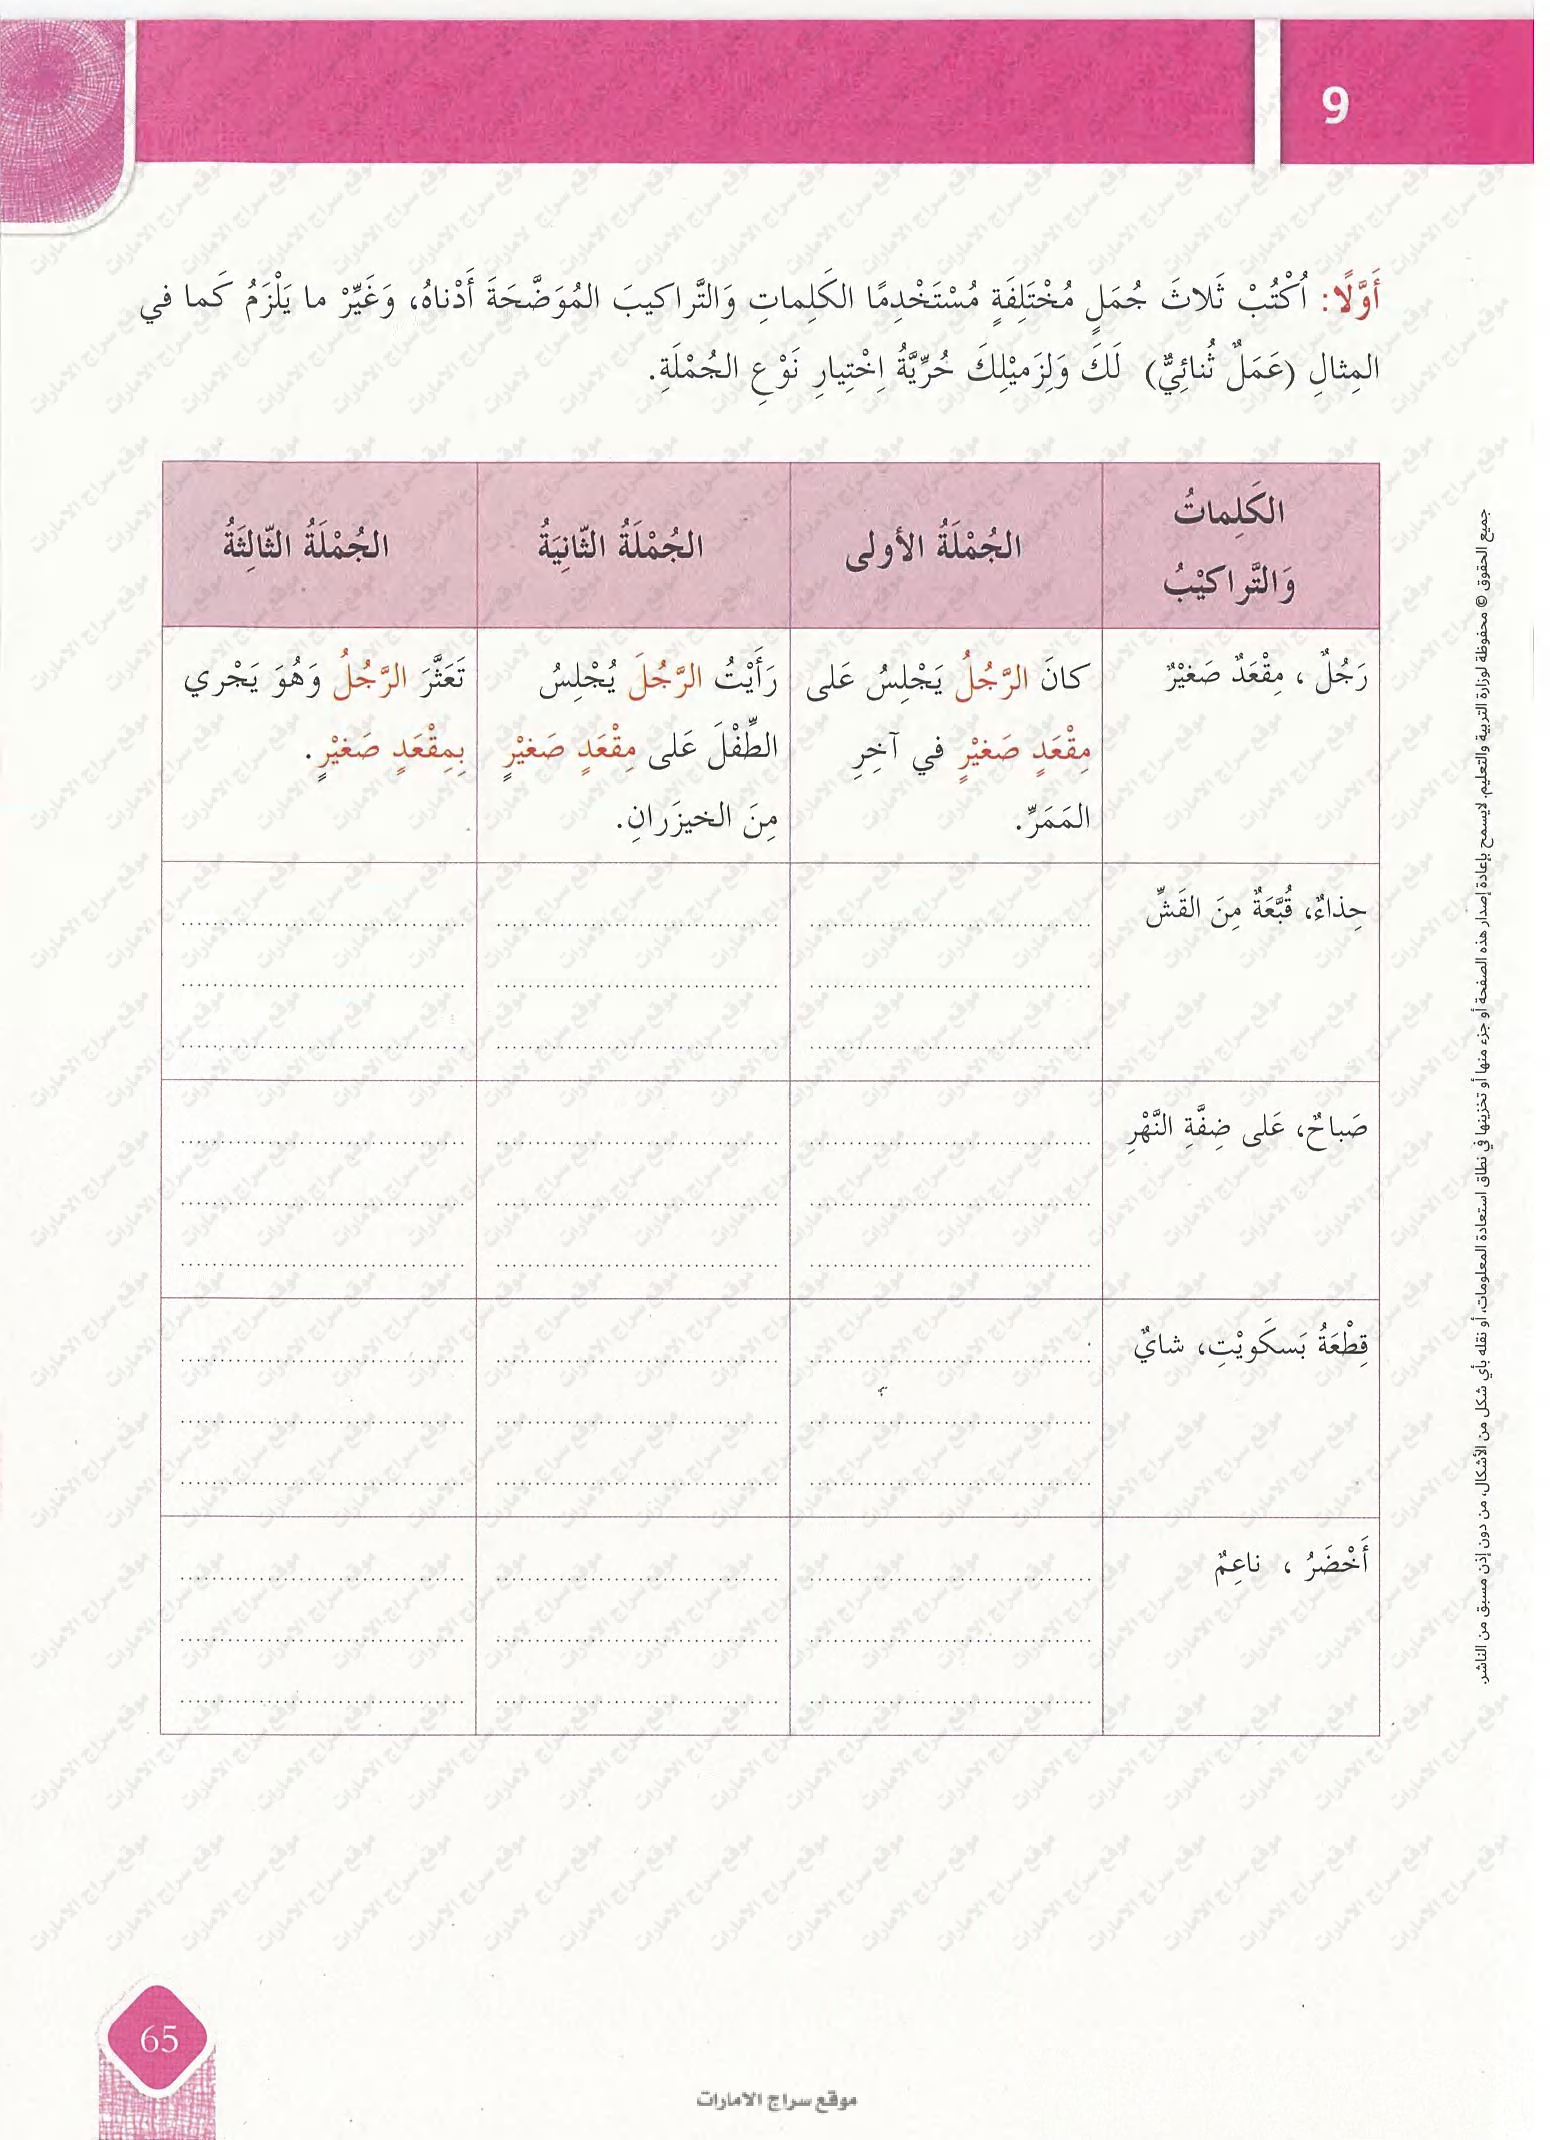 9
أَوَّلًا: اُكْتُبْ ثَلاثَ جُمَلٍ مُخْتَلِفَةٍ مُسْتَخْدِمًا الكَلِماتِ وَالتَّراكيبَ المُوَضَّحَةَ أَدْناهُ، وَغَيِّرْ ما يَلْزَمُ كَما في
المِثالِ (عَمَلٌ ثُنائِيٌّ) لَكَ وَلِزَميْلِكَ حُرِّيَّةُ اِخْتِيارِ نَوْعِ الجُمْلَةِ.
الكَلِماتُ
وَالتَّراكيْبُ
الجُمْلَةُ الأولى
الجُمْلَةُ الثّانِيَةُ
الجُمْلَةُ الثّالِثَةُ
رَجُلٌ ، مِقْعَدٌ صَغيْرٌ
كانَ الرَّجُلُ يَجْلِسُ عَلى
مِقْعَدٍ صَغيْرٍ في آخِرِ
المَمَرِّ.
رَأَيْتُ الرَّجُلَ يُجْلِسُ
الطِّفْلَ عَلى مِقْعَدٍ صَغيْرٍ
مِنَ الخيزَرانِ.
تَعَثَّرَ الرَّجُلُ وَهُوَ يَجْري
بِمِقْعَدٍ صَغيْرٍ.
حِذاءٌ، قُبَّعَةٌ مِنَ القَشِّ
صَباحٌ، عَلى ضِفَّةِ النَّهْرِ
قِطْعَةُ بَسكَويْتِ، شايٌ
أَخْضَرُ ، ناعِمٌ
جميع الحقوق © محفوظة لوزارة التربية والتعليم. لايسمح بإعادة إصدار هذه الصفحة أو جزء منها أو تخزينها في نطاق استعادة المعلومات، أو نقله بأي شكل من الأشكال، من دون إذن مسبق من الناشر.
65
موقع سراج الامارات